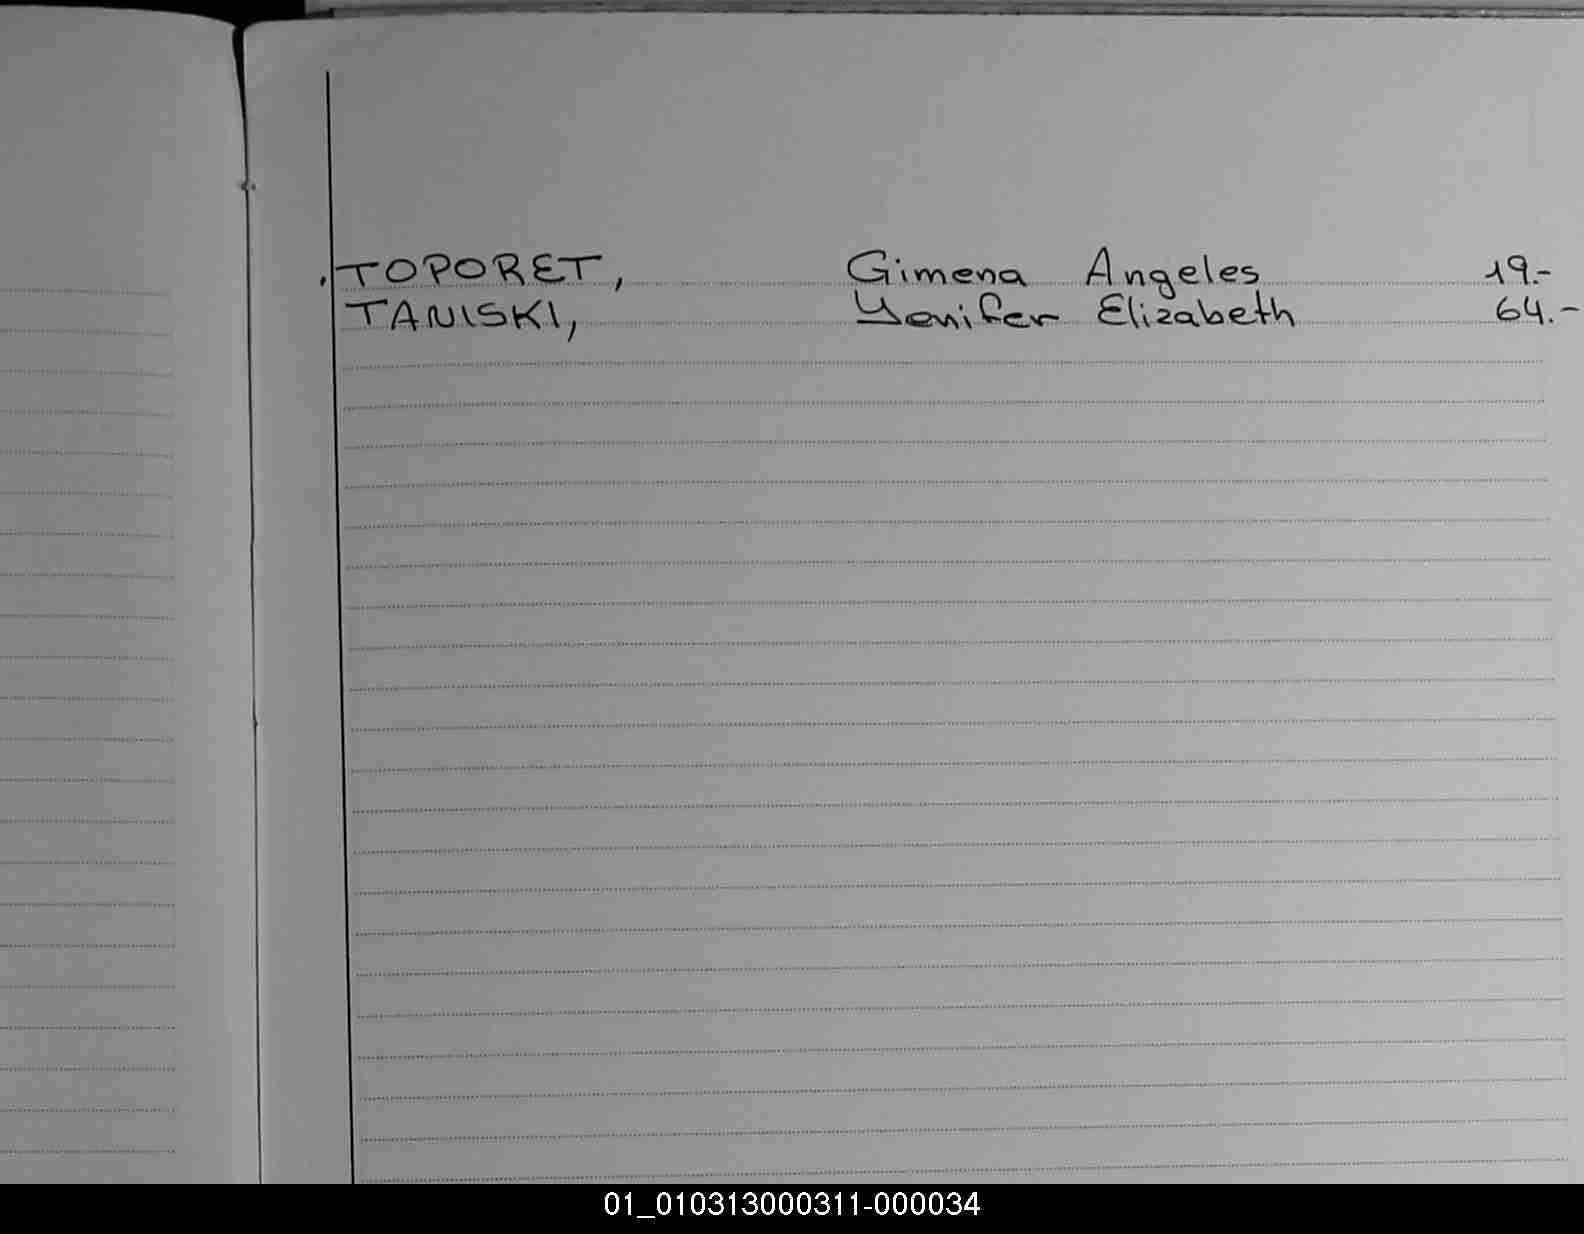 . TOPORET, Gimena Angeles 19.-
TANISKI, Yenifer Elizabeth 64.-
01_010313000311-000034